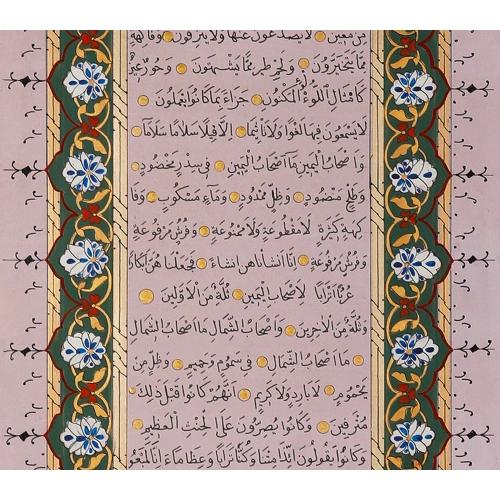 مِنْ مَعِينٍ ۝ لَا يُصَدَّعُونَ عَنْهَا وَلَا يُنْزِفُونَ ۝ وَفَاكِهَةٍ
مِمَّا يَتَخَيَّرُونَ ۝ وَلَحْمِ طَيْرٍ مِمَّا يَشْتَهُونَ ۝ وَحُورٌ عِينٌ
كَأَمْثَالِ اللُّؤْلُؤِ الْمَكْنُونِ ۝ جَزَاءً بِمَا كَانُوا يَعْمَلُونَ
لَا يَسْمَعُونَ فِيهَا لَغْوًا وَلَا تَأْثِيمًا ۝ إِلَّا قِيلًا سَلَامًا سَلَامًا
وَاَصْحَابُ الْيَمِينِ مَا اَصْحَابُ الْيَمِينِ ۝ فِي سِدْرٍ مَخْضُودٍ
وَطَلْحٍ مَنْضُودٍ ۝ وَظِلٍّ مَمْدُودٍ ۝ وَمَاءٍ مَسْكُوبٍ ۝ وَفَا
كِهَةٍ كَثِيرَةٍ لَا مَقْطُوعَةٍ وَلَا مَمْنُوعَةٍ ۝ وَفُرُشٍ مَرْفُوعَةٍ
وَفُرُشٍ مَرْفُوعَةٍ ۝ اِنَّا اَنْشَأْنَاهُنَّ اِنْشَاءً ۝ فَجَعَلْنَاهُنَّ اَبْكَارًا
عُرُبًا اَتْرَابًا لِاَصْحَابِ الْيَمِينِ ۝ ثُلَّةٌ مِنَ الْاَوَّلِينَ
وَثُلَّةٌ مِنَ الْاٰخِرِينَ ۝ وَاَصْحَابُ الشِّمَالِ مَا اَصْحَابُ الشِّمَالِ
۝ مَا اَصْحَابُ الشِّمَالِ ۝ فِي سَمُومٍ وَحَمِيمٍ ۝ وَظِلٍّ مِنْ
يَحْمُومٍ ۝ لَا بَارِدٍ وَلَا كَرِيمٍ ۝ اِنَّهُمْ كَانُوا قَبْلَ ذٰلِكَ
مُتْرَفِينَ ۝ وَكَانُوا يُصِرُّونَ عَلَى الْحِنْثِ الْعَظِيمِ ۝
وَكَانُوا يَقُولُونَ اَئِذَا مِتْنَا وَكُنَّا تُرَابًا وَعِظَامًا ءَاِنَّا لَمَبْعُو